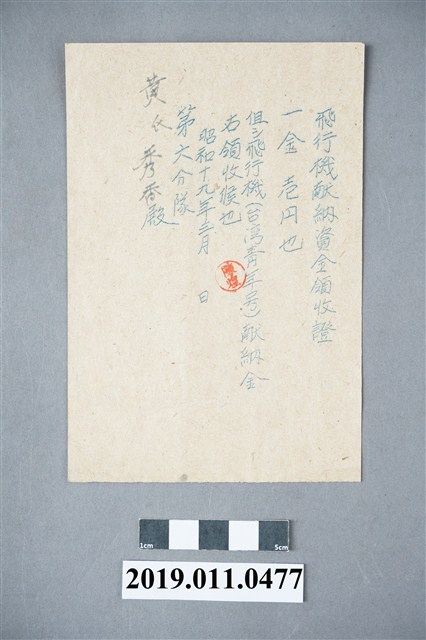 飛行機献納資金領收證
一金 壱円也
但シ飛行機(台湾青年号)献納金
右領收候也
昭和十九年三月 日
第六分隊
黄氏秀香殿
陳煌
1cm 5cm
2019.011.0477